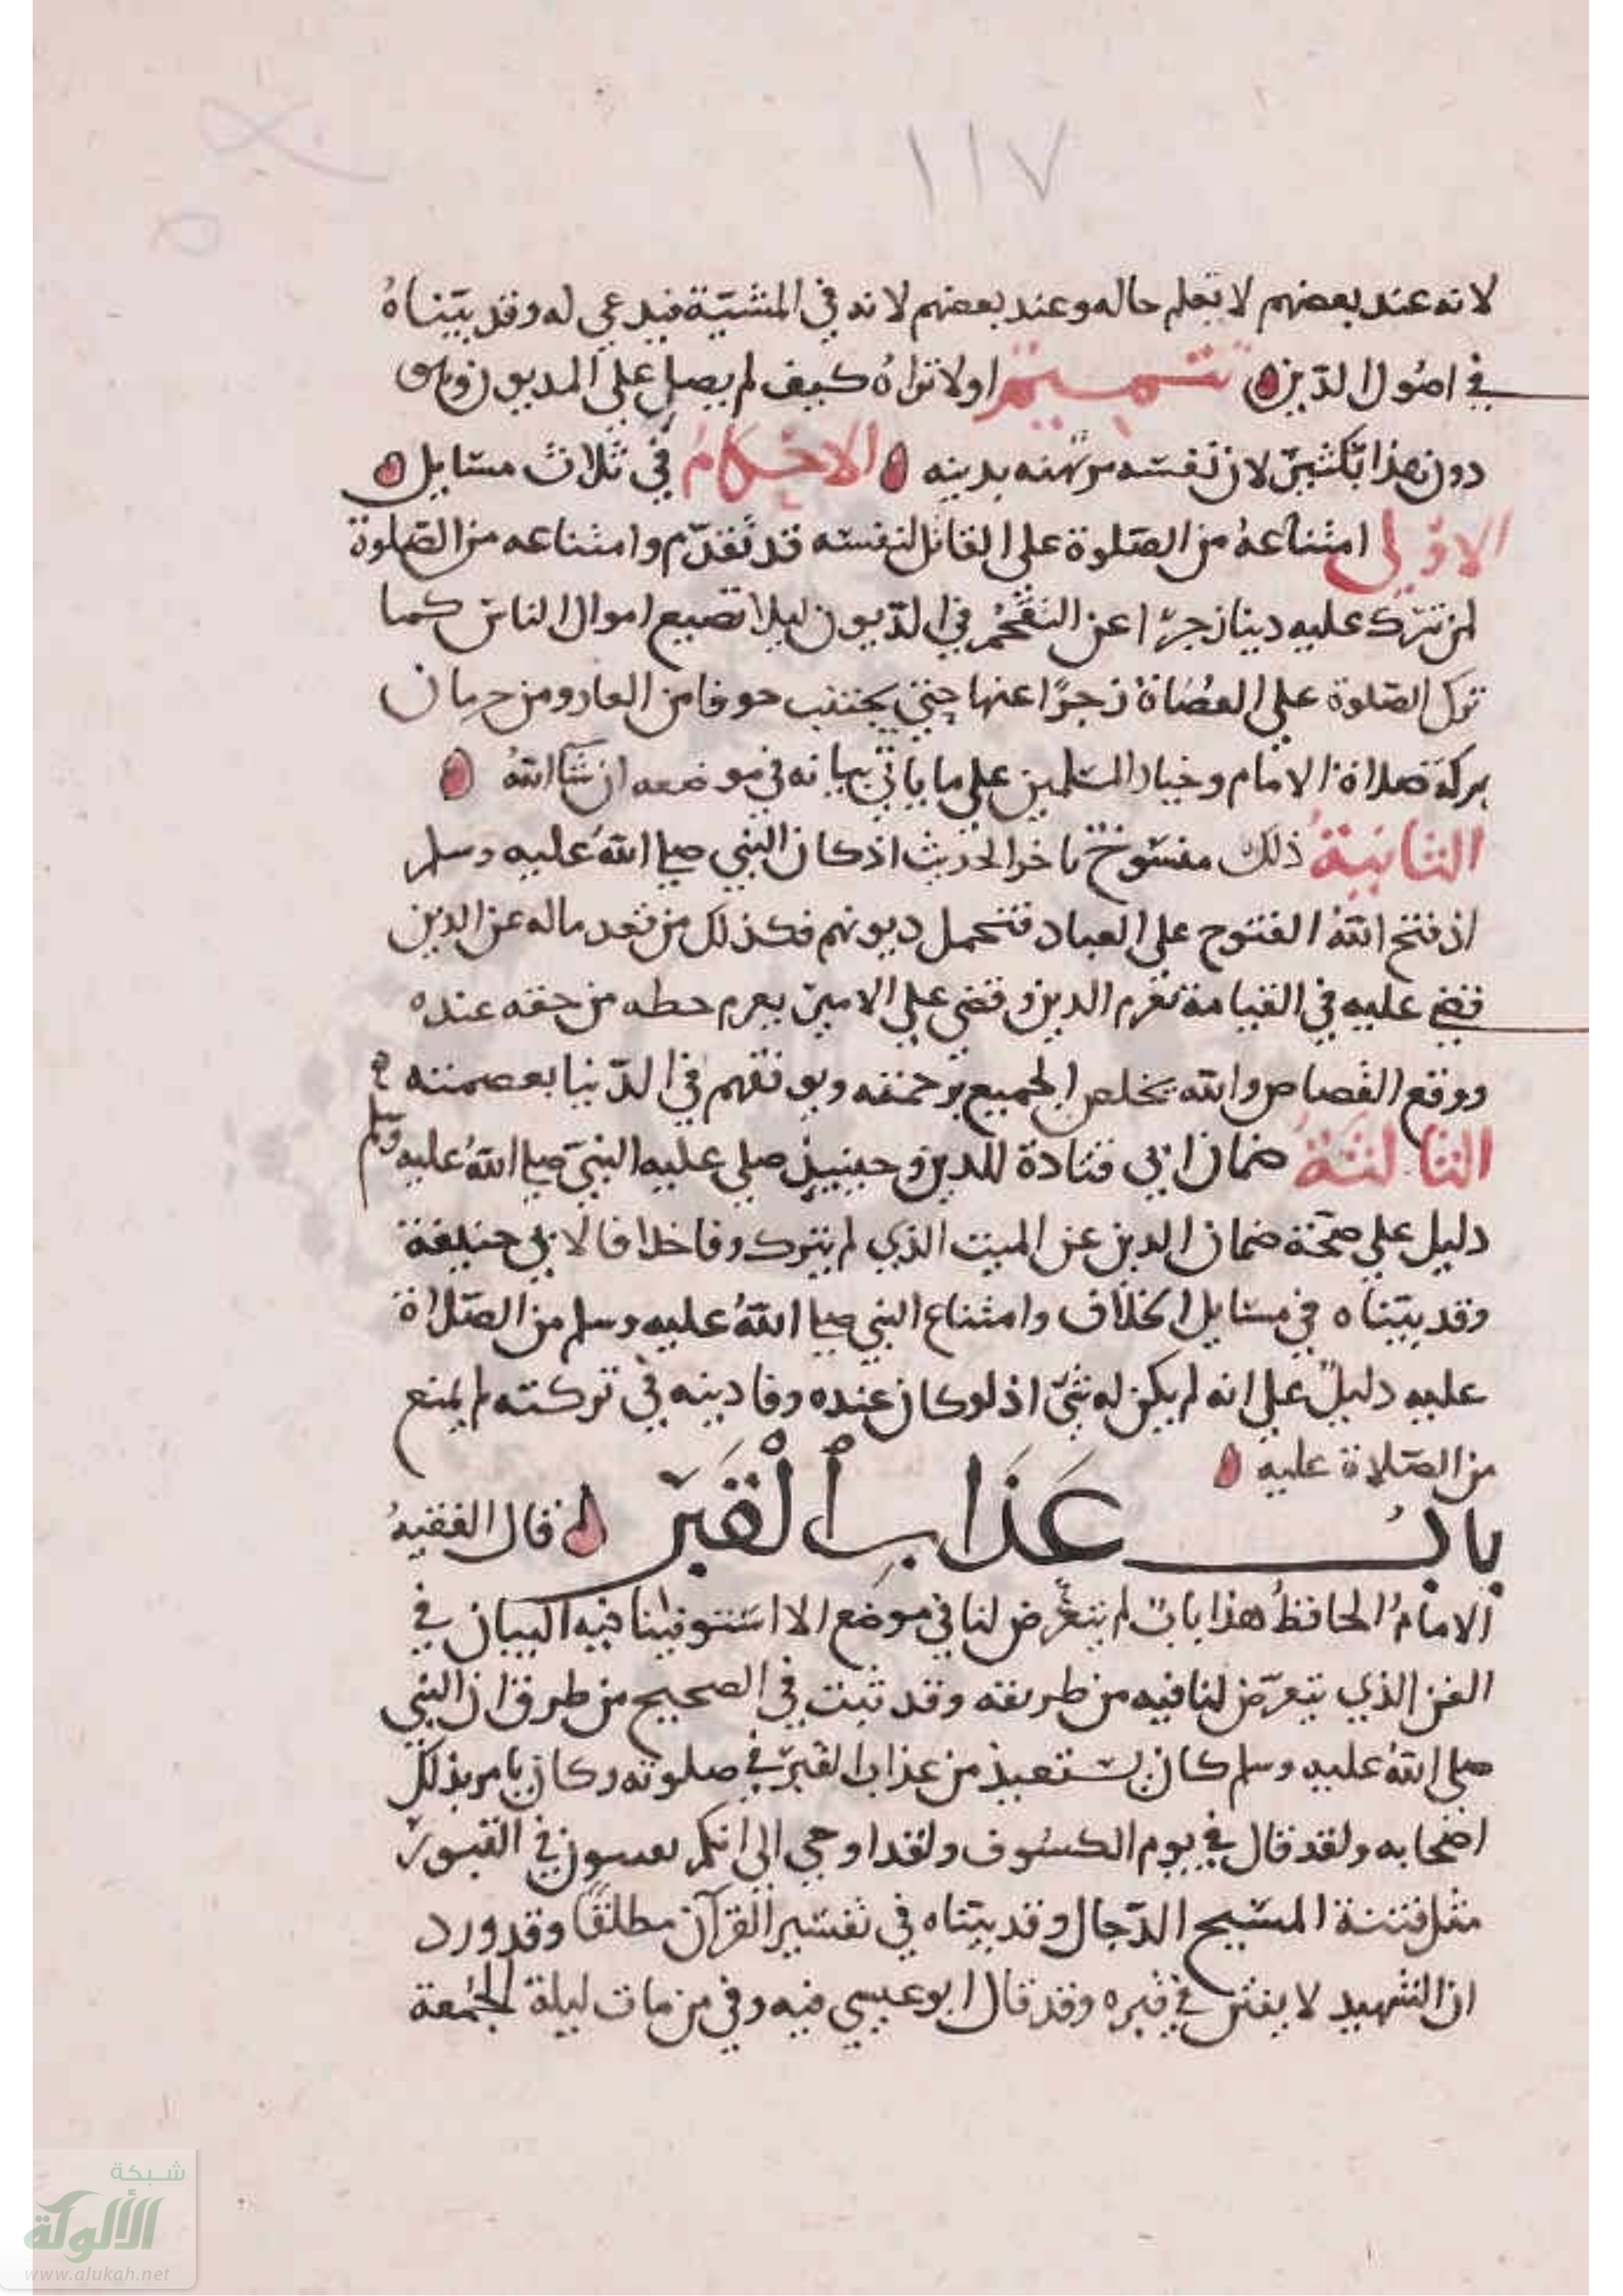 ١١٧
لانه عند بعضهم لا تعلم حاله وعند بعضهم لانه في المشيّة فيدعى له وقد بيّناهُ
في اصُول الدّين تتميم اولا تراهُ كيف لم يصل على المديون
دون هذا بكثير لان نفسه مرتهنه بدينه الاحكام في ثلاث مسايل
الاوّلى امتناعهُ من الصّلوة على القاتل لنفسه قد تقدّم وامتناعه من الصّلوة
لمن ترك عليه دينا زجرًا عن التقحّم في الدّيون ليلا تضيع اموال الناس كما
ترك الصّلوة على العصُاة زجرًا عنها حتى يجتنب خوفا من العار ومن حرمان
بركة صلاة الامام وخيار المسلمين على ما ياتي بيانه في موضعه ان شا اللهُ
الثانية ذلك منسوخ باخر الحديث اذ كان النبي صلى اللهُ عليه وسلم
اذ فتح اللهُ الفتوح على العباد فتحمل ديونهم فكذلك من قعد ماله عن الدين
قضي عليه في القيامة تغرم الدين وقضى على الامير بغرم حطه من حقه عنده
ووقع القصاص والله يخلص الجميع برحمته ويوفقهم في الدّنيا بعصمته
الثالثة ضمان ابي قتادة للدين وحينيذ صلى عليه النبيّ صلى اللهُ عليه وسلم
دليل على صحّة ضمان الدين عن الميت الذي لم يترك وفا خلافا لابي حنيفة
وقد بيّناه في مسايل الخلاف وامتناع النبي صلى اللهُ عليه وسلم من الصّلاة
عليه دليلٌ على انه لم يكن له شيّ اذ لو كان عنده وفا دينه في تركته لم يمنع
من الصّلاة عليه
بابُ عَذَابِ ٱلْقَبْر قال الفقيهُ
الامامُ الحافظُ هذا بابٌ لم يتعرّض لنا في موضع الا استوفينا فيه البيان في
الفن الذي يتعرّض لنا فيه من طريقه وقد ثبت في الصحيح من طرق ان النبي
صلى اللهُ عليه وسلم كان يستعيذ من عذاب القبر في صلوته وكان يامر بذلك
اصحابه ولقد قال في يوم الكسُوف ولقد اوحي الي انكم تفتنون في القبور
مثل فتنة المسيح الدّجال وقد بيّناه في تفسير القرآن مطلقًا وقد ورد
ان الشهيد لا يفتن في قبره وقد قال ابو عيسي فيه وفي من مات ليلة الجُمعة
شبكة
الألوكة
www.alukah.net